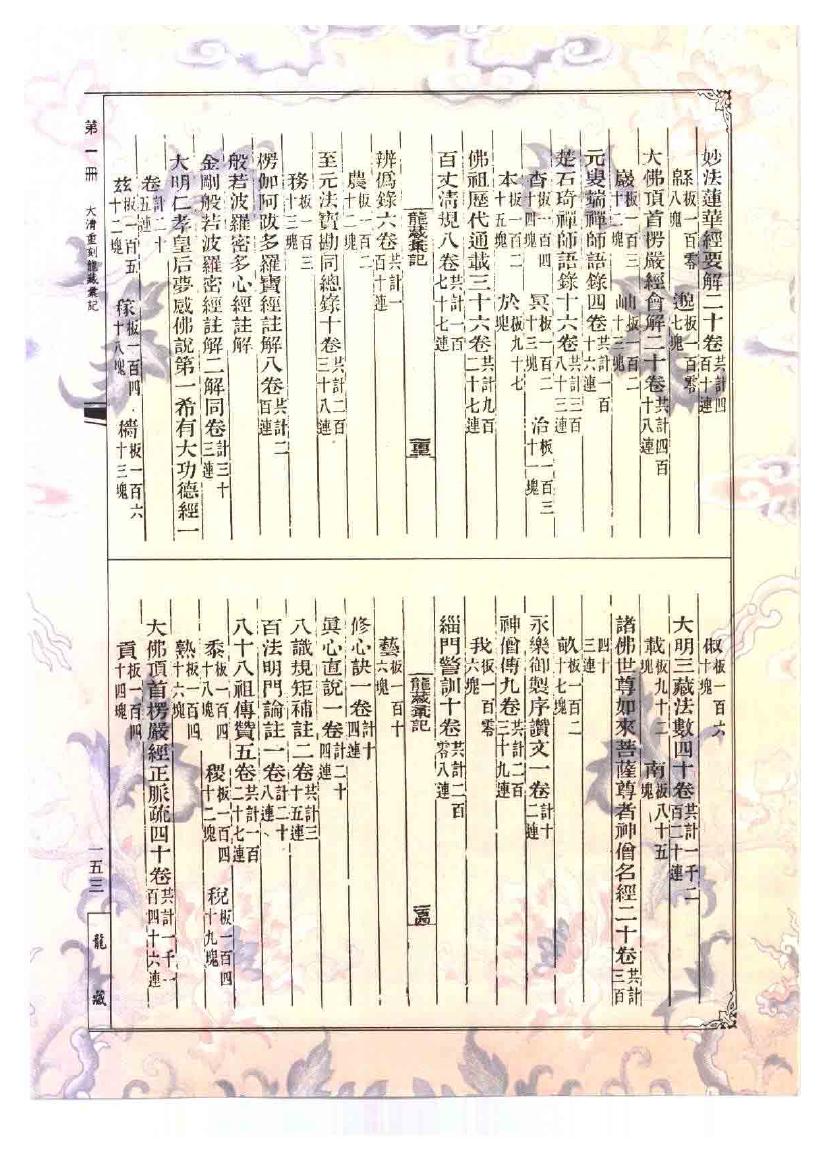 妙法蓮華經要解二十卷共計四百十連
緜板一百零八塊 邈板一百零七塊
大佛頂首楞嚴經會解二十卷共計四百十八連
巖板一百三十二塊 岫板一百二十三塊
元叟端禪師語錄四卷共計一百十六連
楚石琦禪師語錄十六卷共計三百八十三連
杳板一百四十四塊 冥板一百二十三塊 治板一百三十一塊
本板一百二十五塊 於板九十七塊
佛祖歷代通載三十六卷共計九百二十七連
百丈清規八卷共計一百七十七連
龍藏彙記
辨僞錄六卷共計一百十連
農板一百二十二塊
至元法寶勘同總錄十卷共計二百三十八連
務板一百三十三塊
楞伽阿跋多羅寶經註解八卷共計二百連
般若波羅密多心經註解
金剛般若波羅密經註解二解同卷計三十三連
大明仁孝皇后夢感佛說第一希有大功德經一
卷計二十五連
茲板一百五十二塊 稼板一百四十八塊 穡板一百六十三塊
俶板一百六十塊
大明三藏法數四十卷共計一千二百二十連
載板九十二塊 南板八十五塊
諸佛世尊如來菩薩尊者神僧名經二十卷共計三百
四十三連
畝板一百二十七塊
永樂御製序讚文一卷計十二連
神僧傳九卷共計二百三十九連
我板一百零六塊
緇門警訓十卷共計二百零八連
龍藏彙記
藝板一百十六塊
修心訣一卷計十四連
眞心直說一卷計二十四連
八識規矩補註二卷共計三十五連
百法明門論註一卷計二十八連
八十八祖傳贊五卷共計一百二十七連
黍板一百四十八塊 稷板一百四十二塊 稅板一百四十九塊
熟板一百四十六塊
大佛頂首楞嚴經正脈疏四十卷共計一千一百四十六連
貢板一百四十四塊
第一冊 大清重刻龍藏彙記
一五三
龍藏